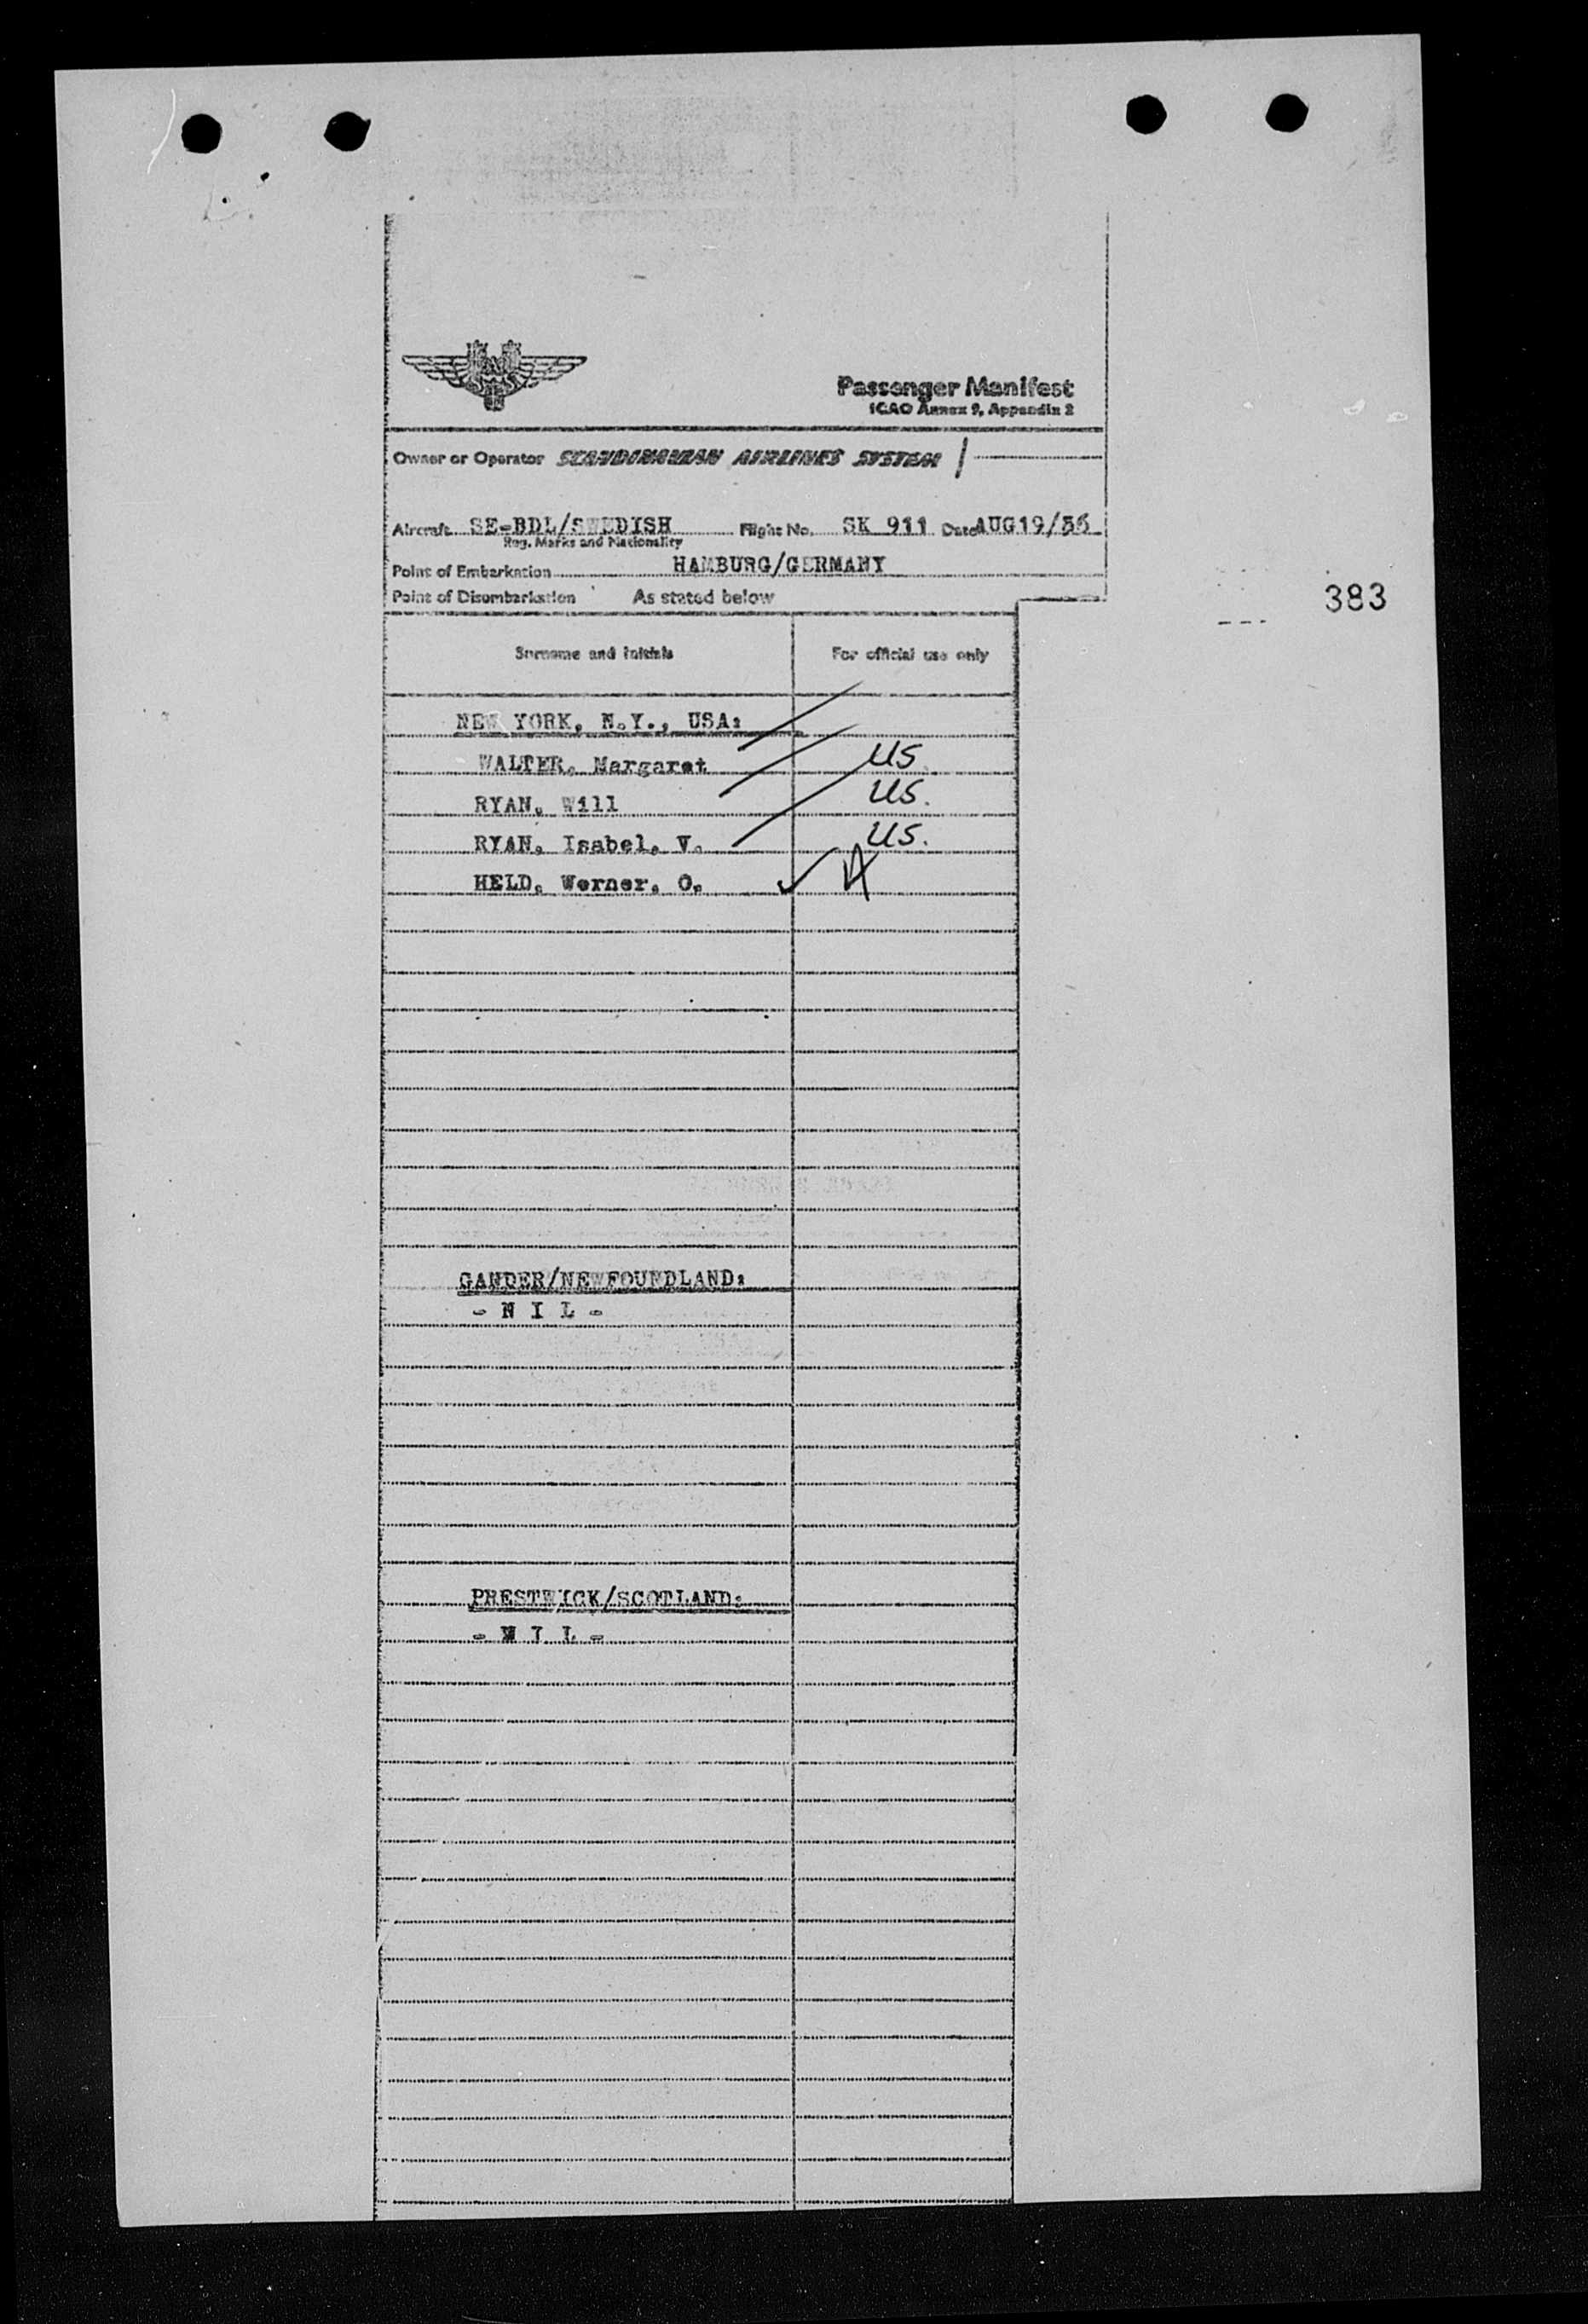 Passenger Manifest
ICAO Annex 9, Appendix 2
Owner or Operator SCANDINAVIAN AIRLINES SYSTEM
Aircraft SE-BDL/SWEDISH Flight No. SK 911 Date AUG19/56
Reg. Marks and Nationality
Point of Embarkation HAMBURG/GERMANY
Point of Disembarkation As stated below
383
Surname and Initials For official use only
NEW YORK, N.Y., USA:
WALTER. Margaret US
RYAN. Will US.
RYAN. Isabel. V. US.
HELD. Werner. O. ✓
GANDER/NEWFOUNDLAND:
- N I L -
PRESTWICK/SCOTLAND:
- N I L -